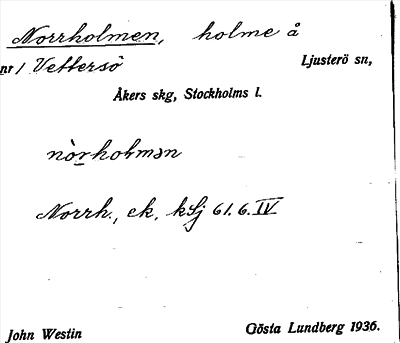 Norrholmen, holme å
nr 1 Vettersö Ljusterö sn,
Åkers skg, Stockholms l.
nòrholmən
Norrh., ek. kSj 61.6.IV
John Westin Gösta Lundberg 1936.